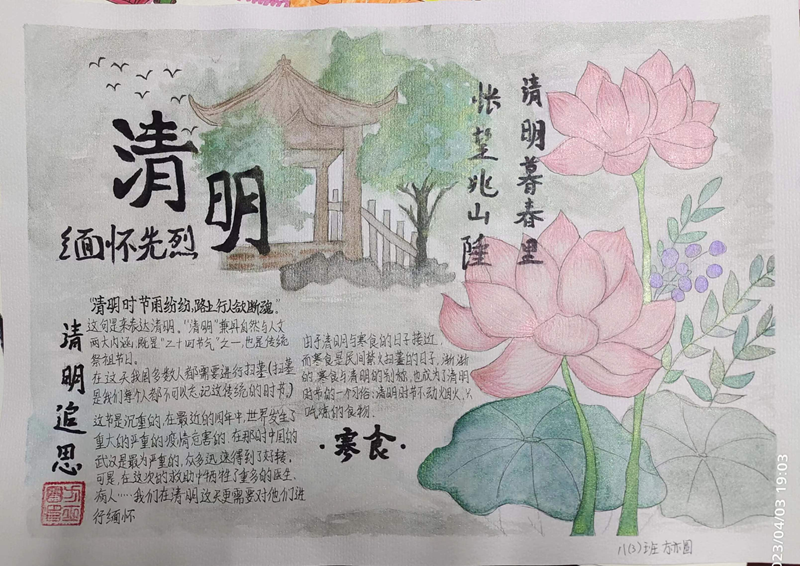 清明
缅怀先烈
清明暮春里
怅望北山陲
"清明时节雨纷纷,路上行人欲断魂。"
这句是来表达清明。"清明"兼具自然与人文
两大内涵,既是"二十四节气"之一,也是传统
祭祖节日。
在这天我国多数人都需要进行扫墓(扫墓
是我们每个人都不可以忘记这传统的时节。)
这节是沉重的,在最近的几年中,世界发生了
重大的严重的疫情危害的,在那时中国的
武汉是最为严重的,众多迅速得到了好转,
可是,在这次的救助中牺牲了重多的医生,
病人……我们在清明这天更需要对他们进
行缅怀
清明追思
由于清明与寒食的日子接近,
而寒食是民间禁火扫墓的日子,渐渐
的,寒食与清明的别称,也成为了清明
时节的一个习俗:清明时节不动烟火,只
吃凉的食物.
·寒食·
八(3)班
2023/04/03 19:03